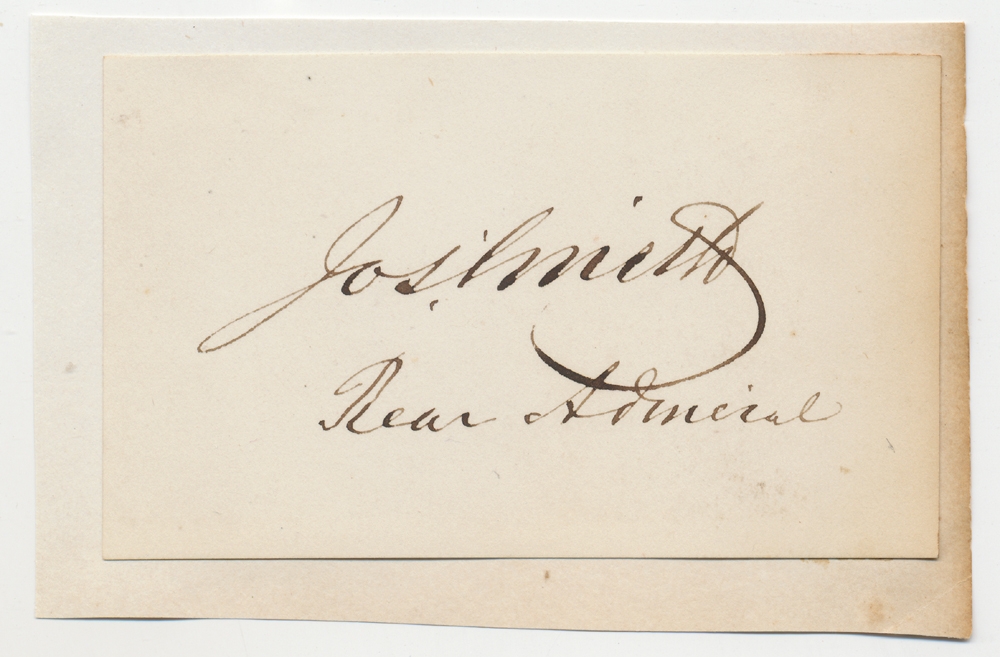 Jos. Smith
Rear Admiral